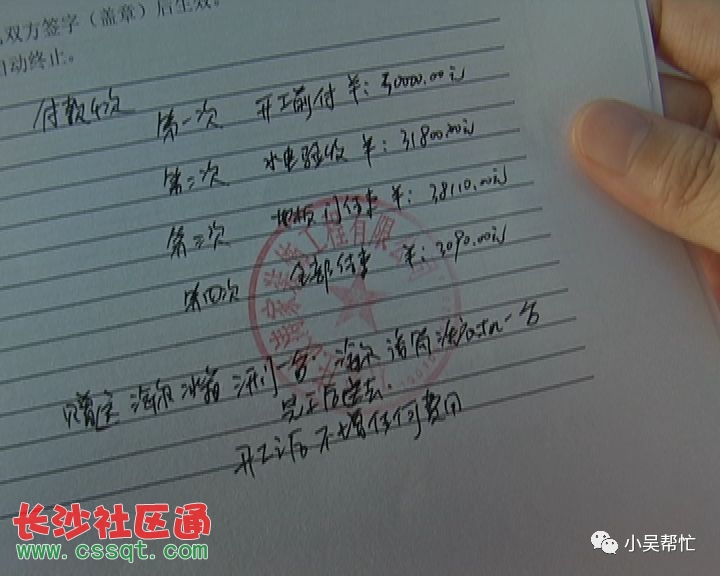 双方签字（盖章）后生效。
自动终止。
付款4次
第一次 开工前付 ¥：30000.00元
第二次 水电验收 ¥：31800.00元
第三次 地板门结束 ¥：38110.00元
第四次 全部结束 ¥：3090.00元
赠送海尔冰箱 一台 海尔 洗衣机一台
完工后送去.
开工后不增任何费用
长沙社区通
www.cssqt.com
小吴帮忙